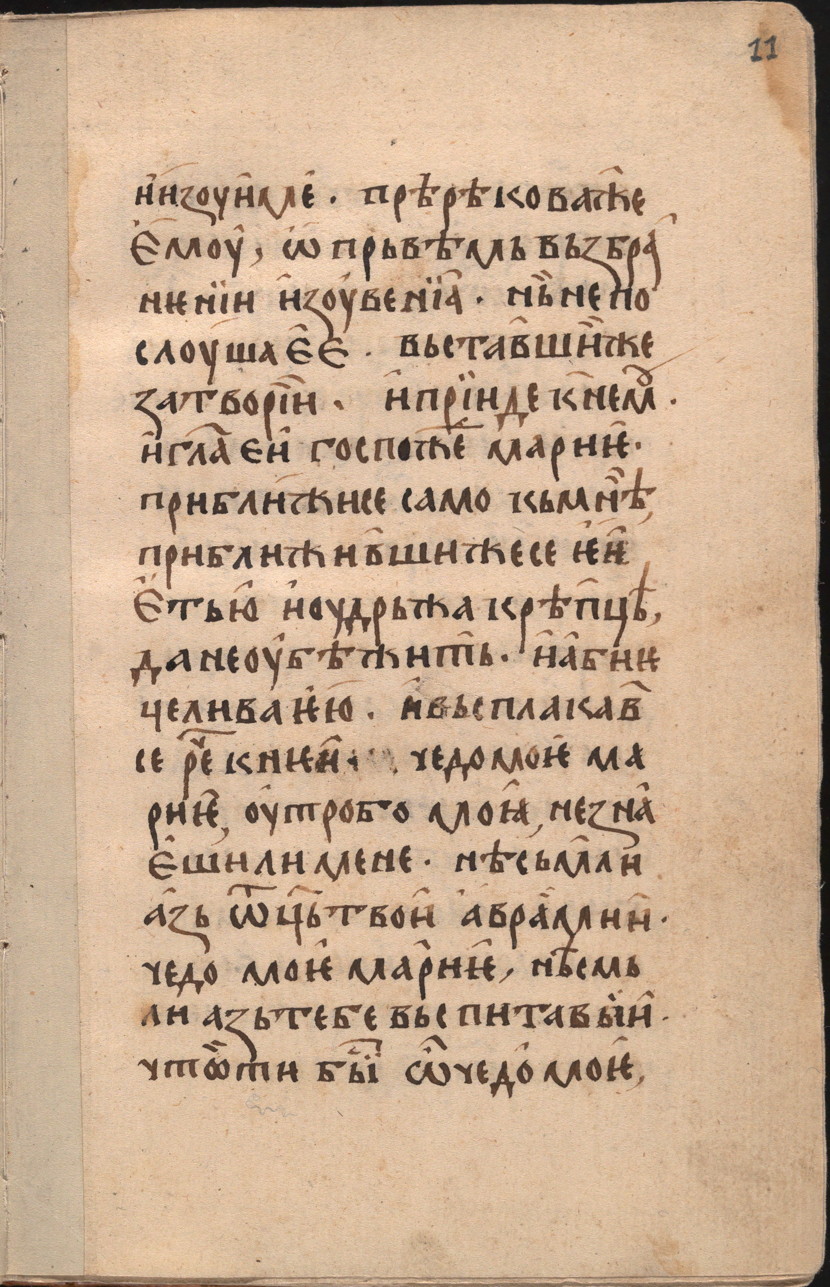 11
и҆изоуи҆ме́ . прѣрѣковаше
Е҆моу҆, ѡ҆ прьвѣмь вьзбра
нѥнїи и҆зоу҆венїа҆ . нь̀ не по
слоушаѥ҆Е . вьстав҆ши́же
затворїи . и҆прїиде к҆немꙋ .
и҆гл҃а ѥи҆ госпож҆е марїѥ .
приближисе само кьмнѣ̀,
приближив҆шижесе ѥ҆и
Е҆тью҆ и҆оудрьжа крѣп҆цѣ,
да не оу҆бѣжить . и҆абиѥ
целива ѥ҆ю . и҆вьсплакав҆
се ре҆ кнѥи҆ . чедо моѥ ма
риѥ, оу҆тробо моꙗ, незна҆
Е҆ши ли мене . нѣсьмли
а҆зь ѿц҃ь твои҆ а҆враа҆мии .
чедо моѥ мариѥ, нѣсмь
ли азь тебе вьспитавы́и .
что̀ ти бы҆ї ѽ чедо моѥ,